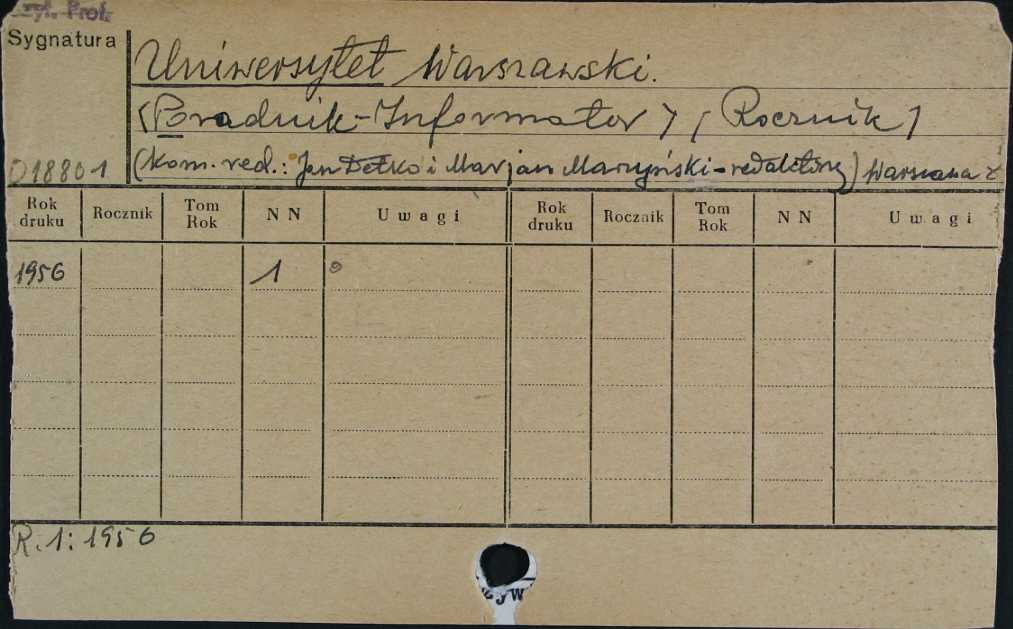 Czyt. Prof.
Sygnatura
Uniwersytet Warszawski.
(Poradnik-Informator) (Rocznik)
018801
(kom. red.: Jan Detko i Marjan Marzyński - redaktorzy) Warszawa
Rok druku Rocznik Tom Rok NN Uwagi Rok druku Rocznik Tom Rok NN Uwagi
1956 1
R. 1: 1956